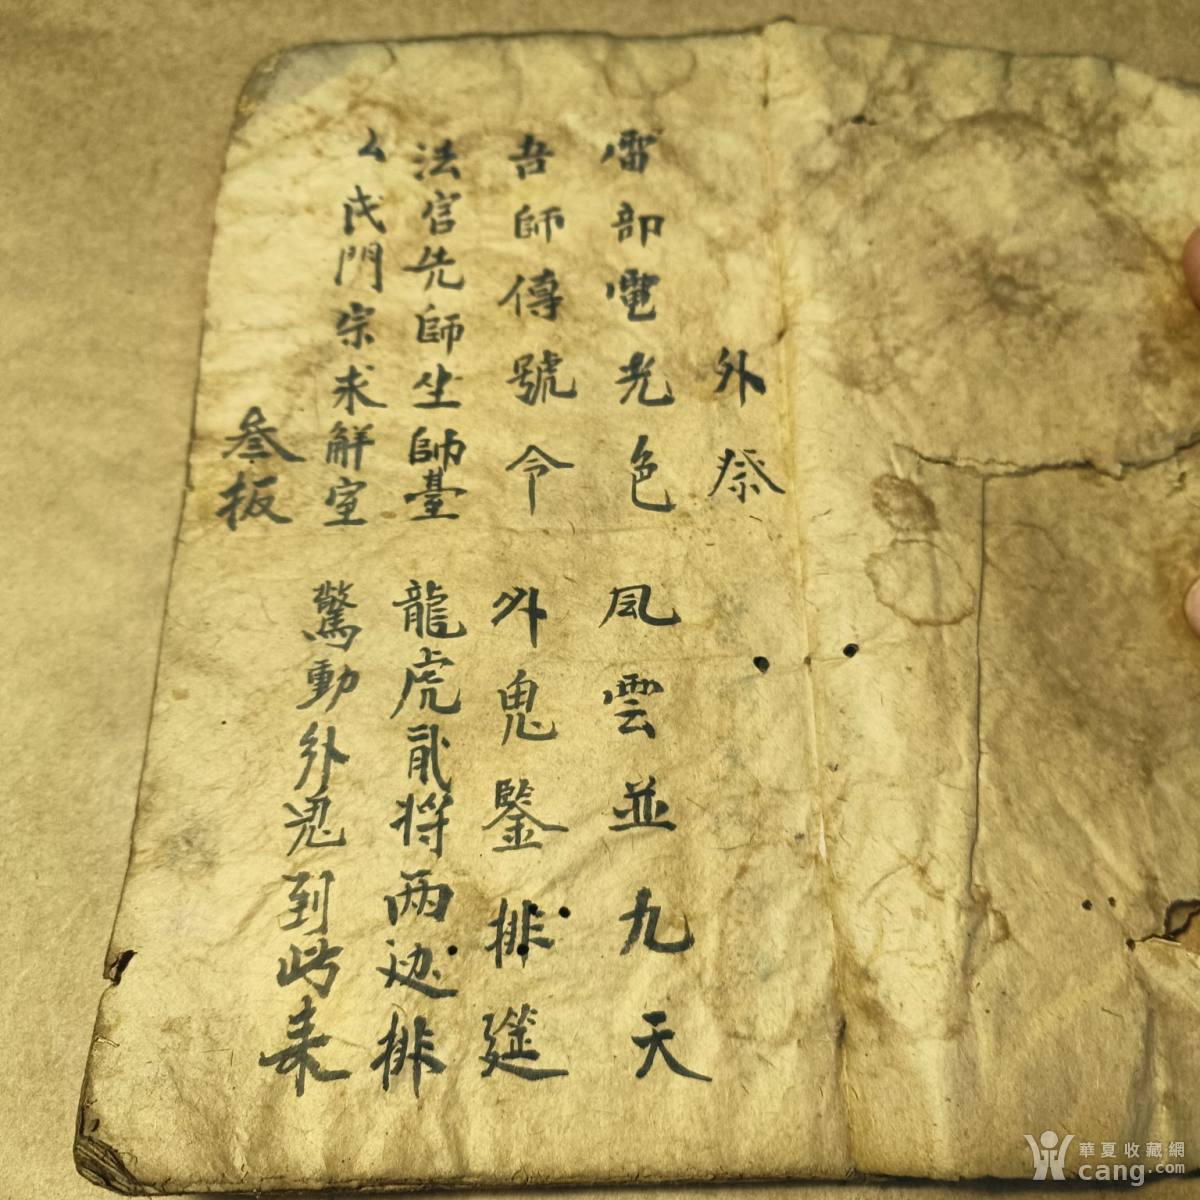 外祭
雷部電光色 風雲並九天
吾師傳號令 外鬼鑒排筵
法官先師坐師臺 龍虎貳將兩边排
厶氏門宗求解室 驚動外鬼到此来
叁板
華夏收藏網
cang.com